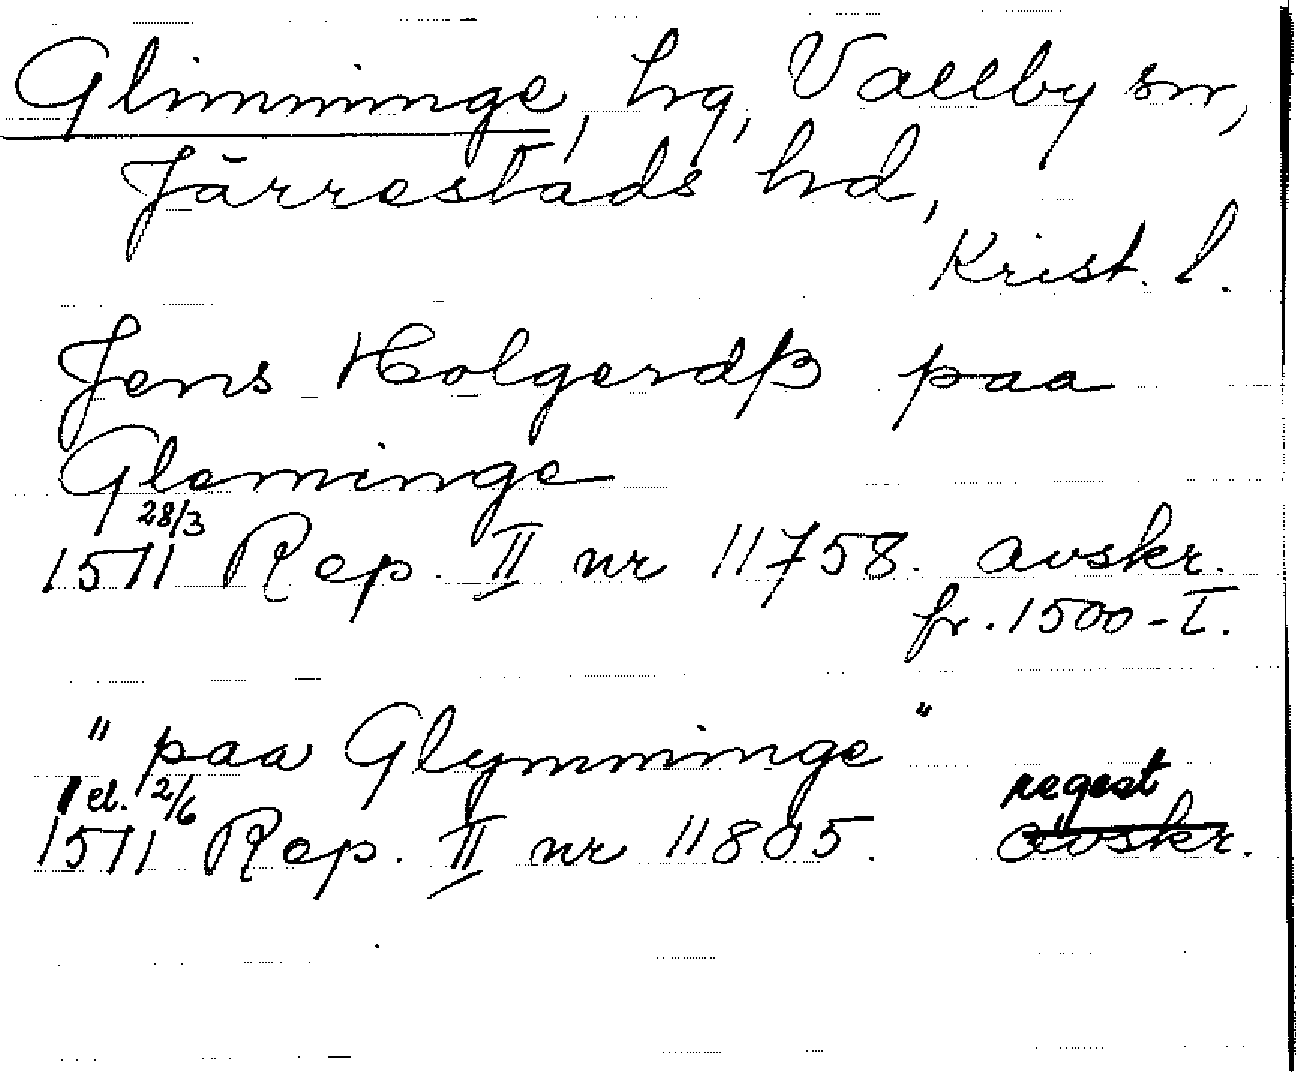 Glimminge, hg, Vallby sn,
Järrestads hd,
Krist. l.
Jens Holgerdß paa
Gleminge
28/3
1511 Rep. II nr 11758. avskr.
fr. 1500-t.
" paa Glymminge "
el. 12/6 regest
1511 Rep. II nr 11805. avskr.